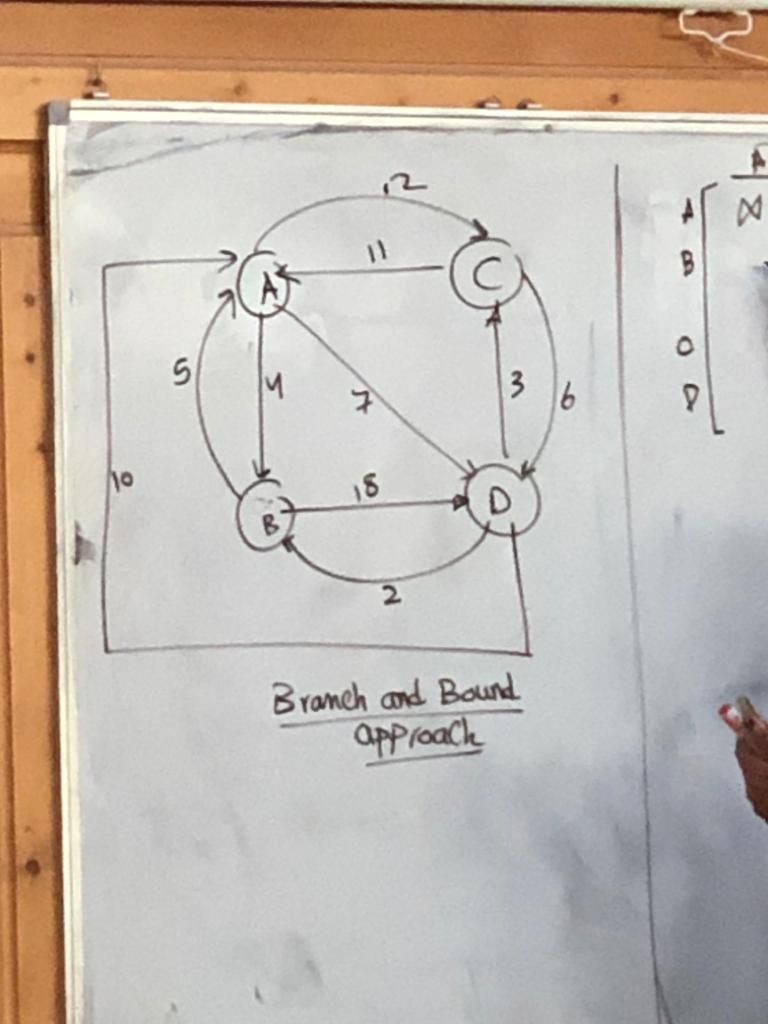 12
11
A
C
5
4
7
3
6
10
18
B
D
2
Branch and Bound
approach
A
A
∞
B
C
D